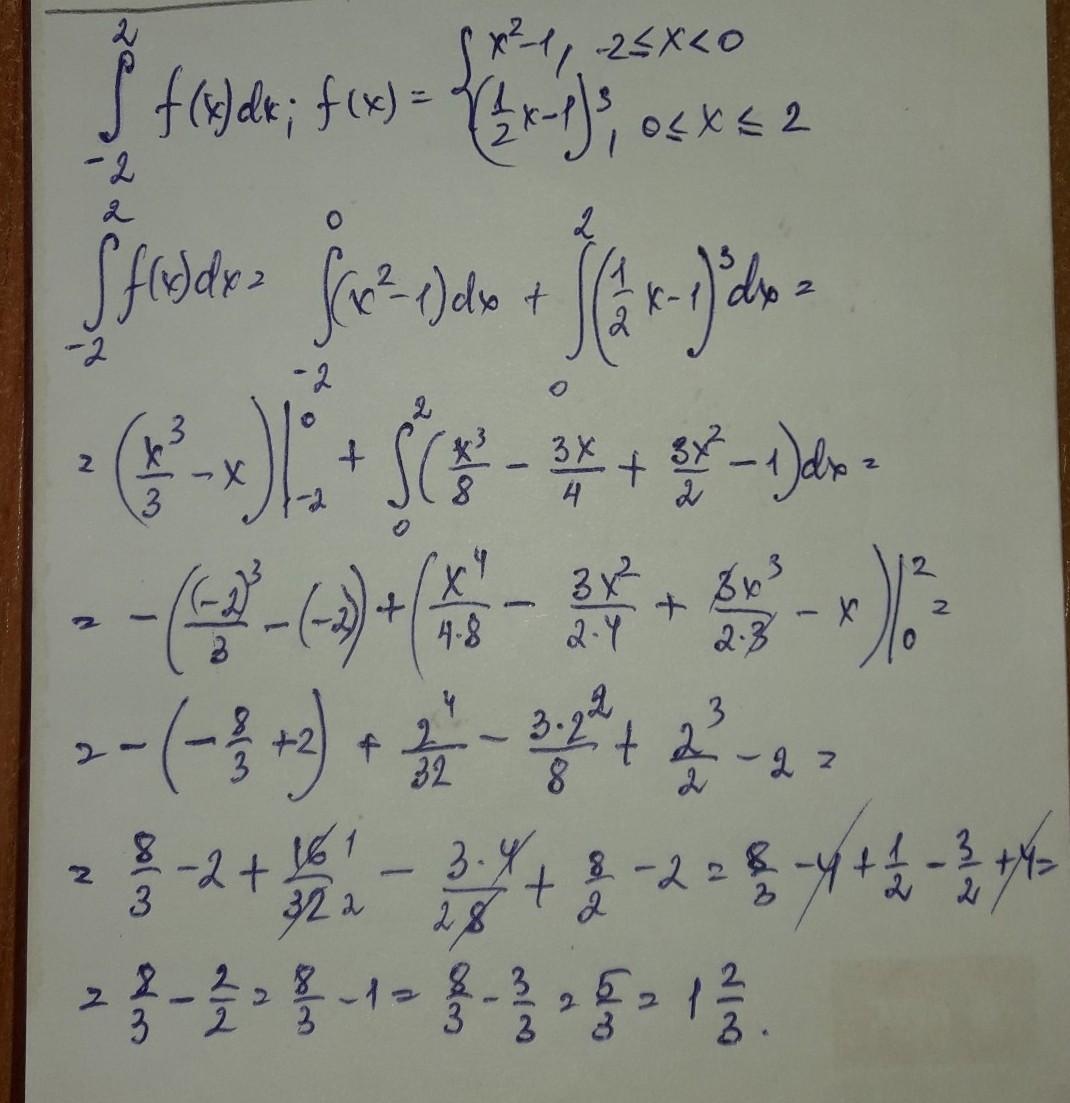 ∫_{-2}^{2} f(x)dx; f(x) = { x²-1, -2≤x<0
(1/2 x-1)³, 0≤x≤2
∫_{-2}^{2} f(x)dx = ∫_{-2}^{0} (x²-1)dx + ∫_{0}^{2} (1/2 x-1)³dx =
= (x³/3 - x)|_{-2}^{0} + ∫_{0}^{2} (x³/8 - 3x/4 + 3x²/2 - 1)dx =
= -((-2)³/3 - (-2)) + (x⁴/4·8 - 3x²/2·4 + 3x³/2·3 - x)|_{0}^{2} =
= -(-8/3 + 2) + 2⁴/32 - 3·2²/8 + 2³/2 - 2 =
= 8/3 - 2 + 16 1/32 2 - 3·4/2 8 + 8/2 - 2 = 8/3 - 4 + 1/2 - 3/2 + 4 =
= 8/3 - 2/2 = 8/3 - 1 = 8/3 - 3/3 = 5/3 = 1 2/3.